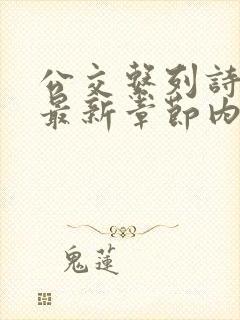 公交系列詩
最新章節內
鬼蓮